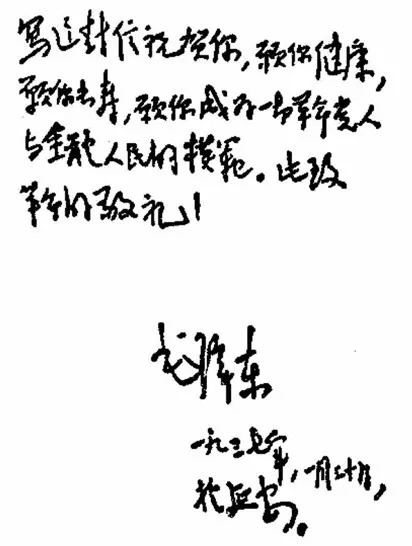 寫这封信祝贺你,願你健康,
願你长寿,願你成为一切革命党人
与全體人民的模範。此致
革命的敬礼!
毛泽东
一九三七年,一月三十日,
於延安。